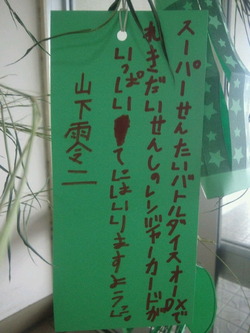 スーパーせんたいバトルダイスオーDXで
れきだいせんしのレンジャーカードが
いっぱいてにはいりますように
山下零二